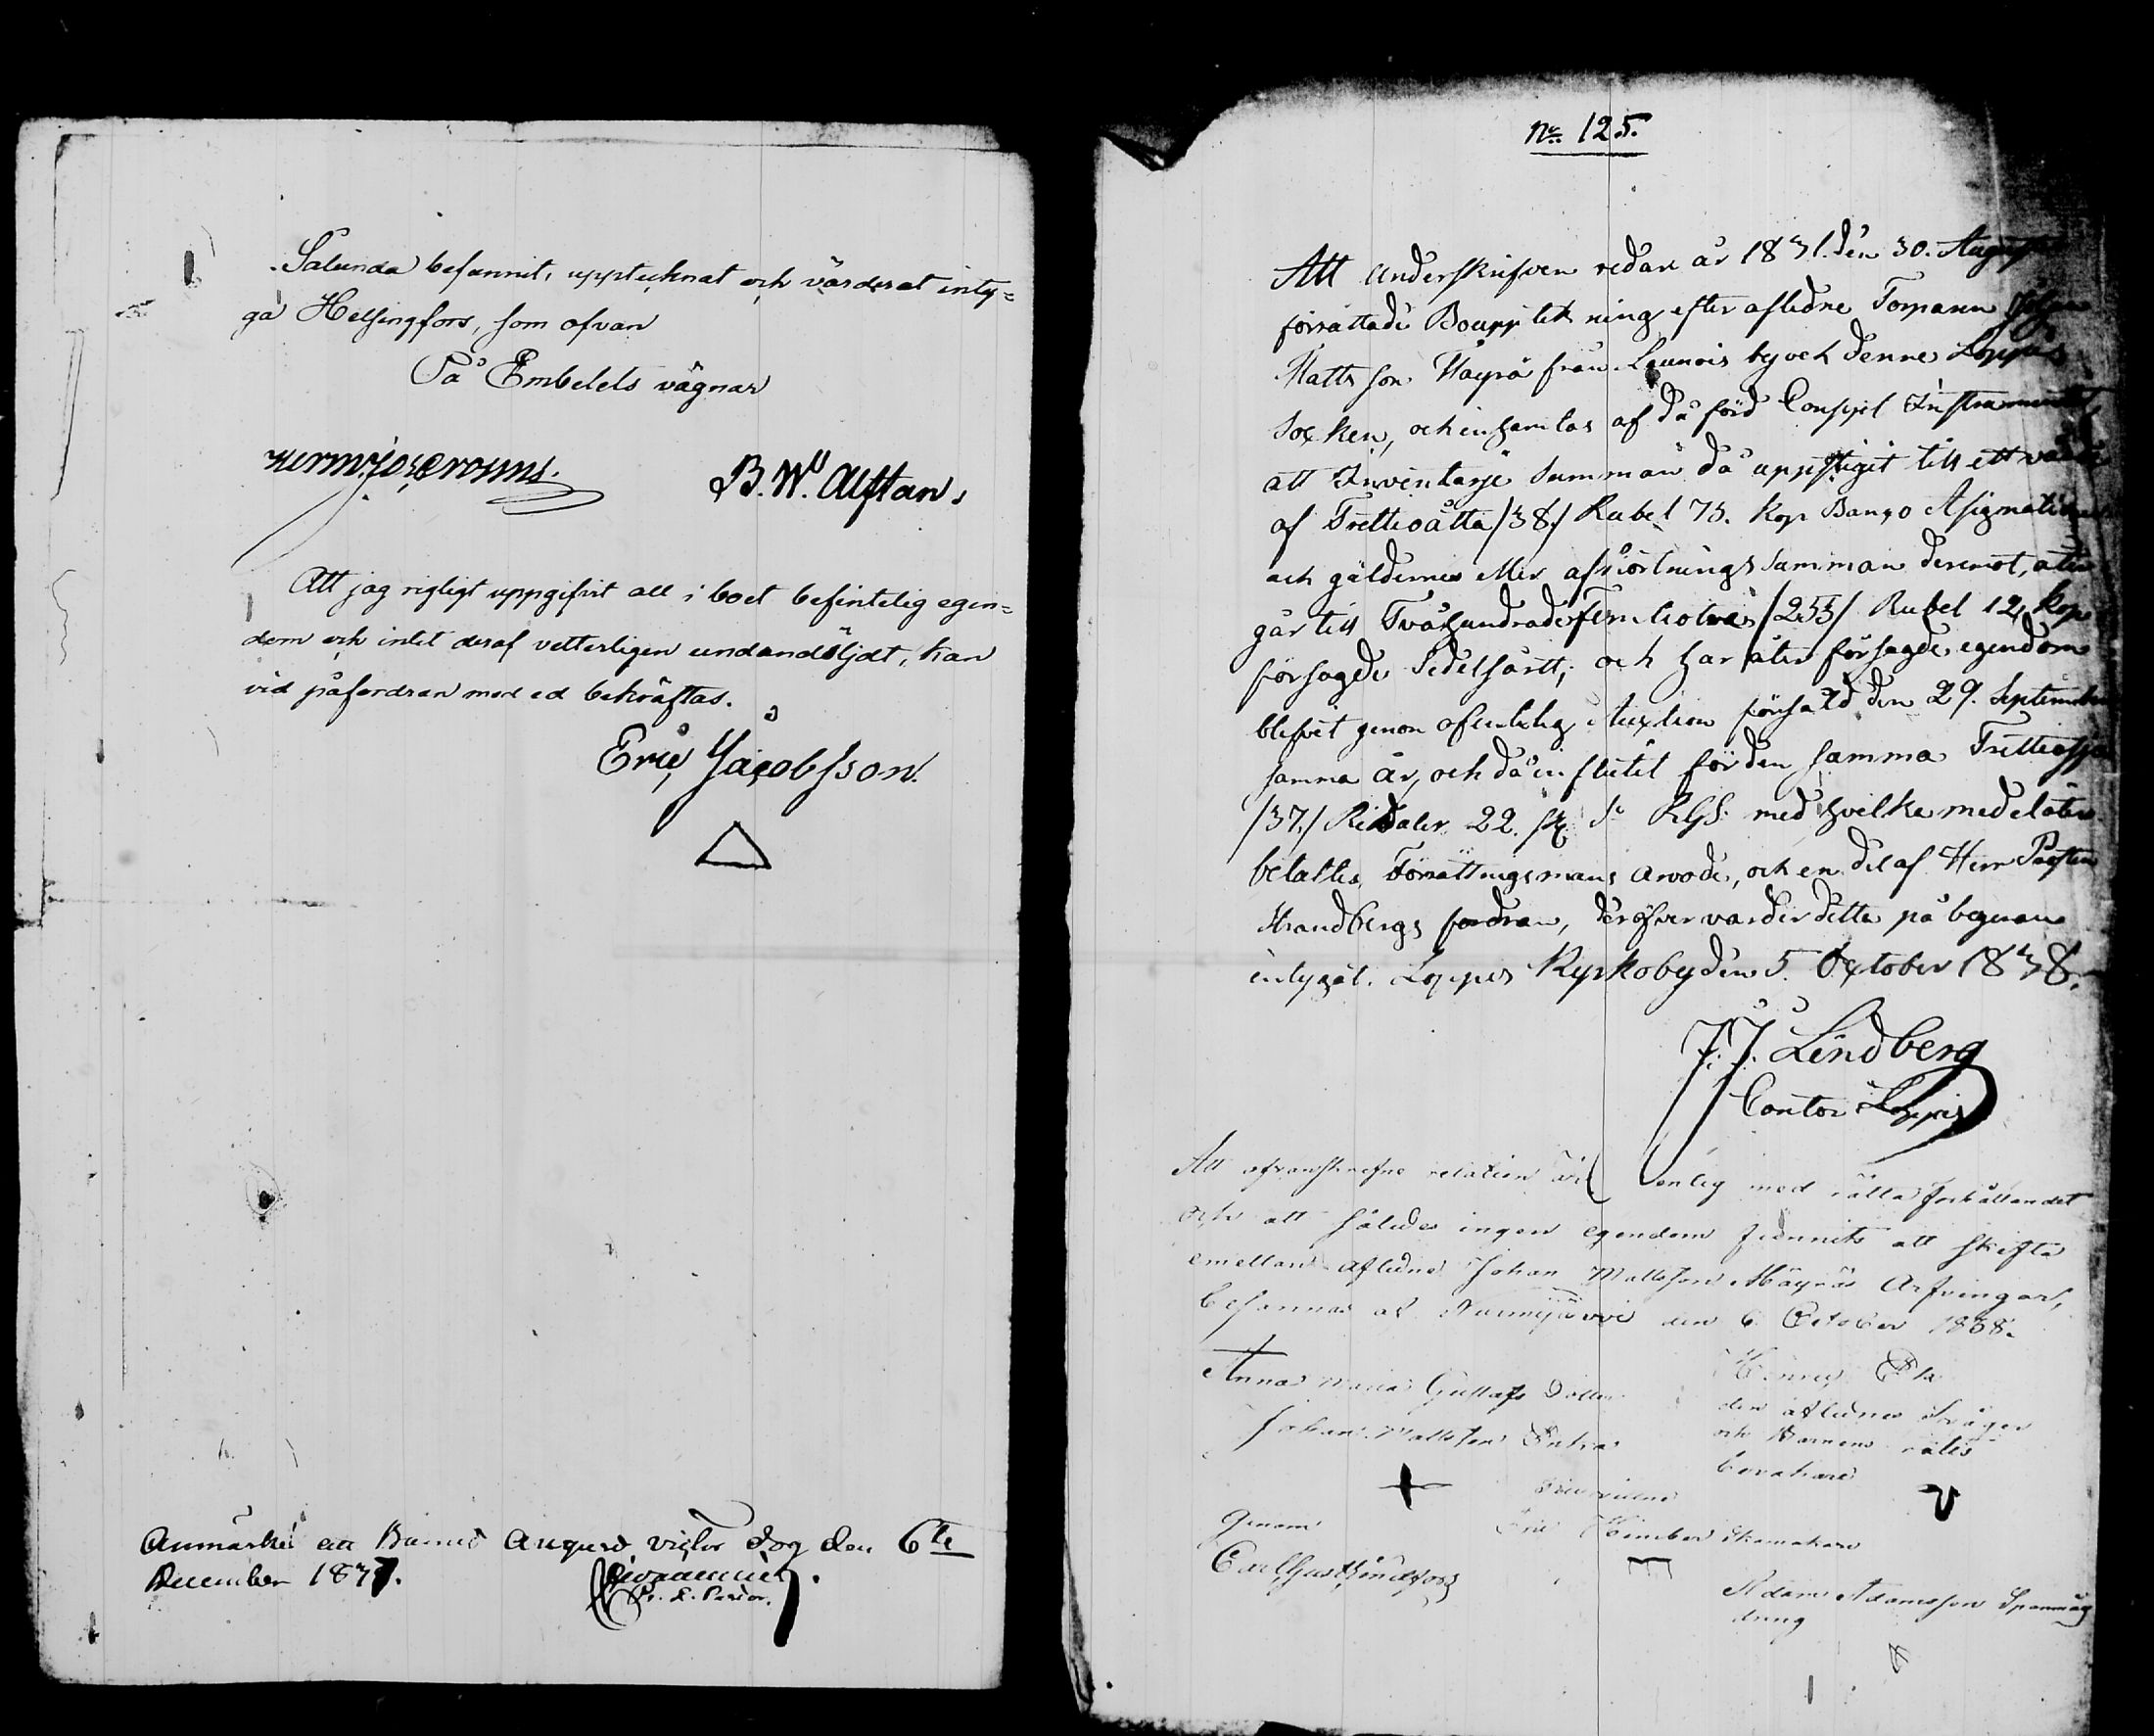 Sålunda befunnit, upptecknat och värderat inty=
ga Helsingfors, som ofvan
På Embetets vägnar
B. W. Alftan,
Att jag rigtigt uppgifvit all i boet befintelig egen=
dom och intet deraf vetterligen undandöljdt, kan
vid påfordran med ed bekräftas.
Eric Jacobsson.
Anmärkes att Barnet August Victor dog den 6te
December 1837.
No 125.
Att underskrifven redan år 1831. den 30. Augusti
förrättade Bouppteckning efter aflidne Torparen Johan
Mattsson Mäyrä från Launois by och denne Loppis
Socken, och inhämtas af då förd Instrument
att Inventarje Summan då uppstigit till ett värde
af Trettioåtta /38/ Rubel 75. kop Banco Assignationer
och gäldernes eller afkortnings Summan deremot, åter
går till Tvåhundrade femtiotre /253/ Rubel 12 kop
försagde Sedelsort; och har åter försagde egendom
blifvit genom ofentelig Auction försåld den 29. September
samma år, och då influtit för den samma Trettiosju
/37./ Riksdaler 22. sk. RGS. med hvilke medel åter
betaltes Förrättningsmans arvode, och en del af Herr Pastor
Strandbergs fordran, deröfver varder dette på begäran
intygat. Loppis Kyrkoby den 5. October 1838.
J. J. Lindberg
Cantor i Loppis
Att ofvanskrefne relation är enlig med rätta förhållandet
och att således ingen egendom funnits att skifta
emellan aflidne Johan Mattsson Mäyräs Arfvingar,
Nurmijärvi den 6 October 1838.
Anna Maria Gustafs Dotter
Johan Mattsson
den aflidnes Svåger
och Barnens rätts
bevakare
genom
Eric Skomakare
Carl Gust Lindfors
Adam Adamsson
dräng